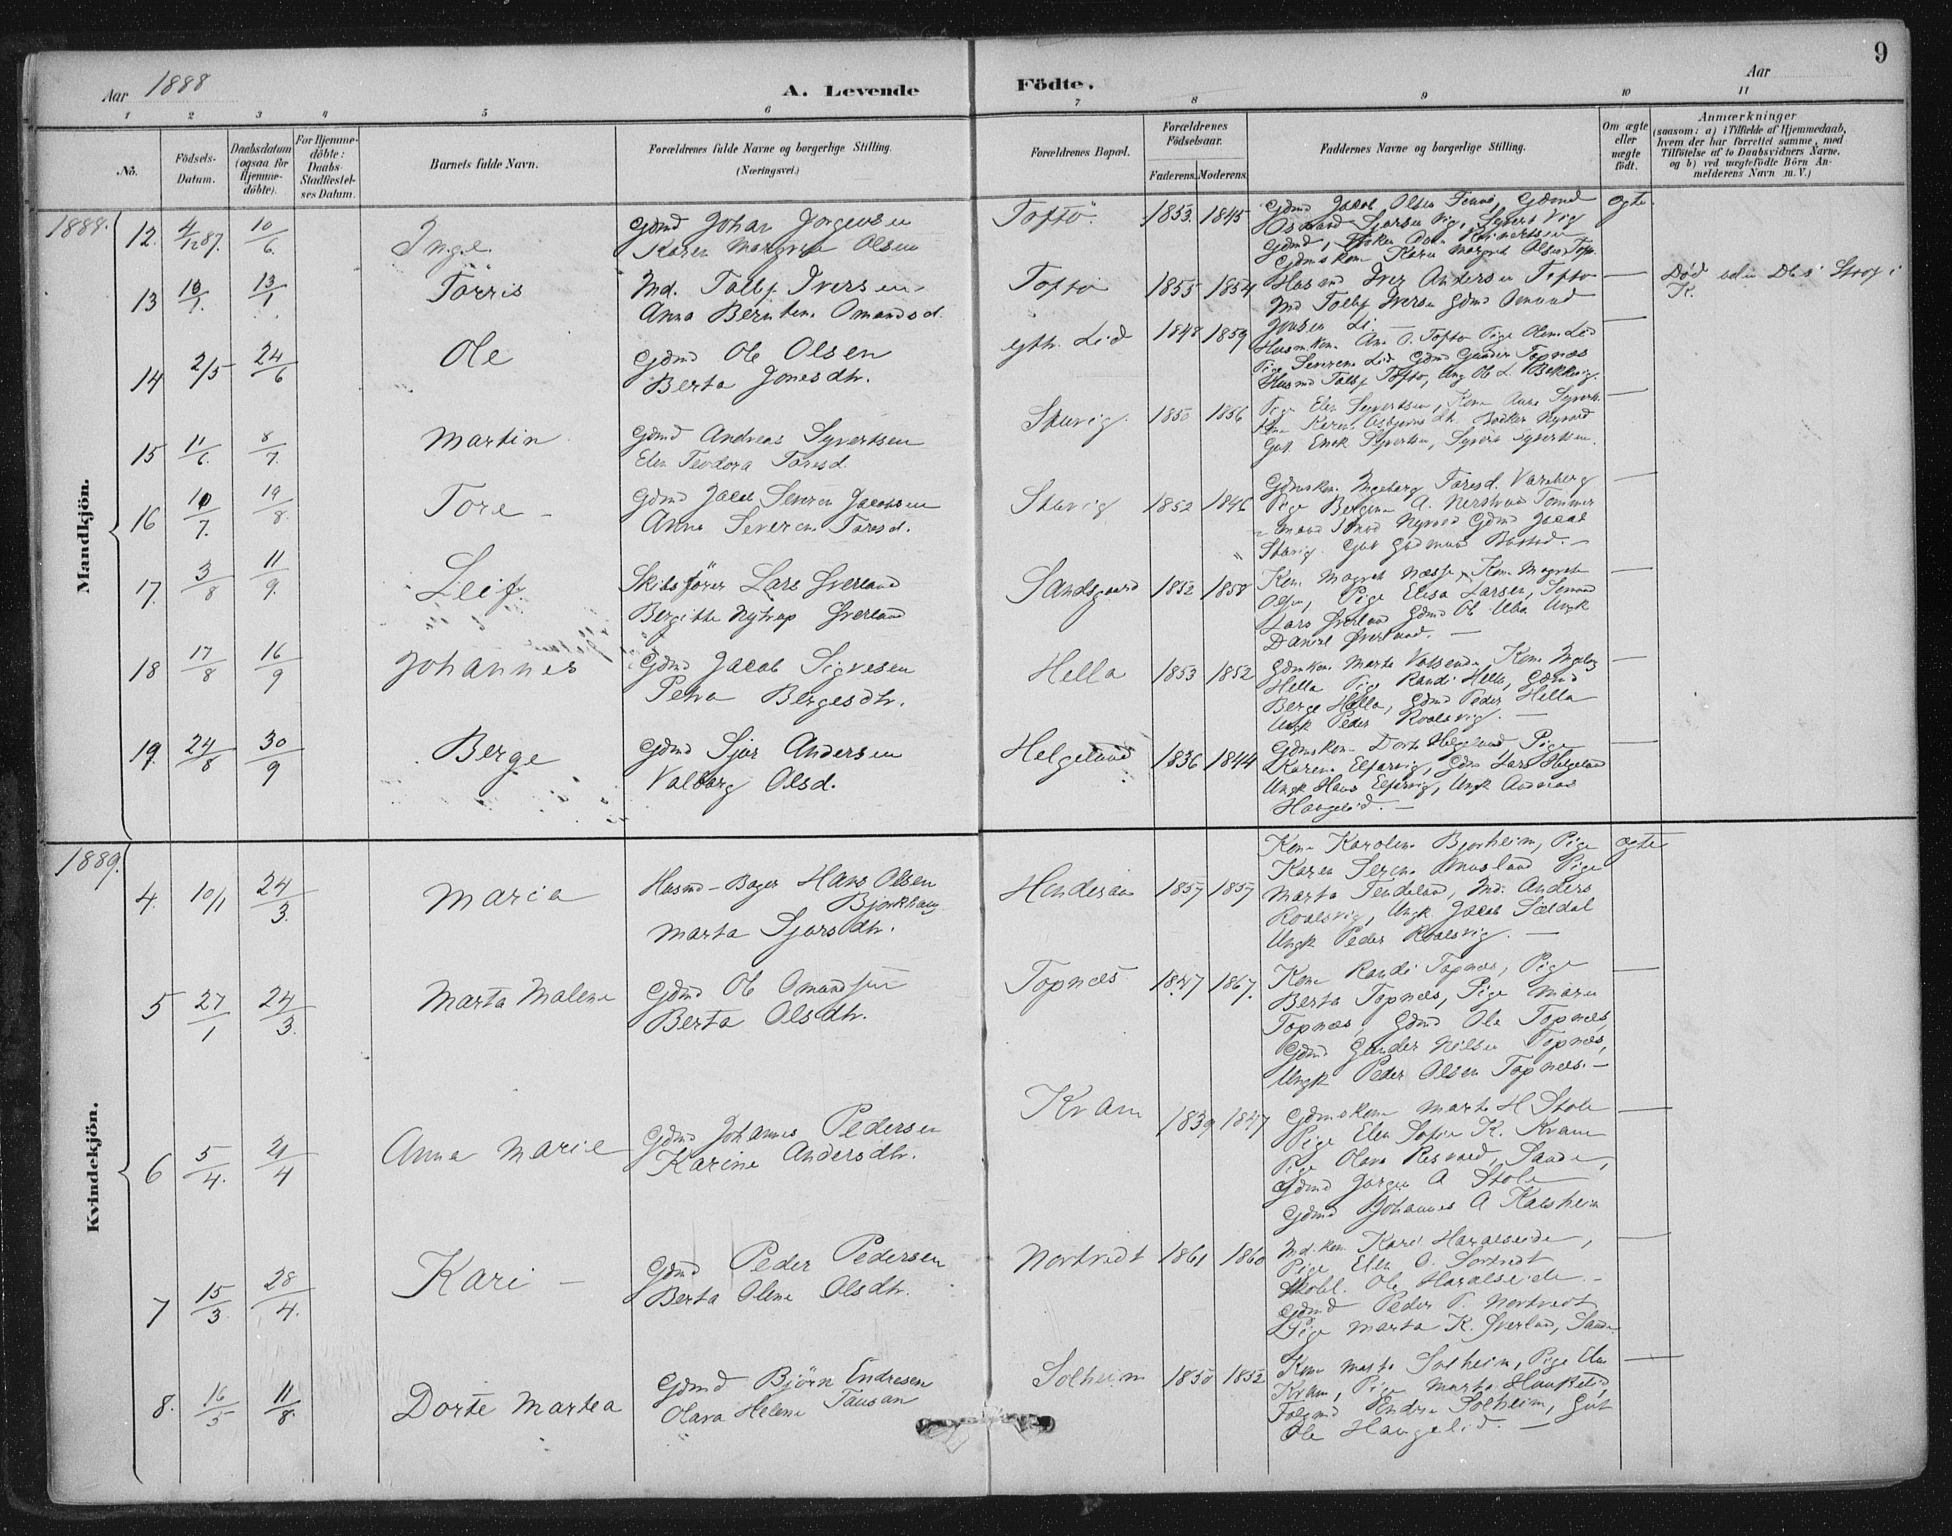 9
Aar 1888
A. Levende Födte.
Aar
1 2 3 4 5 6 7 8 9 10 11
No.
Födsels-Datum.
Daabsdatum (ogsaa for Hjemme-döbte).
For Hjemme-döbte: Daabs-Stadfæstelses Datum.
Barnets fulde Navn.
Forældrenes fulde Navne og borgerlige Stilling. (Næringsvei.)
Forældrenes Bopæl.
Forældrenes Födselsaar.
Faderens. Moderens.
Faddernes Navne og borgerlige Stilling.
Om ægte eller uægte födt.
Anmærkninger (saasom: a) i Tilfælde af Hjemmedaab, hvem der har forrettet samme, med Tilföielse af to Daabsvidners Navne, og b) ved uægtefödte Börn Anmelderens Navn m. V.)
Mandkjön.
1888.
12. 4/12 87. 10/6. Inge Gdmd Johan Jorgensen
Karen Margret Olsen
Toftö 1853 1845 Gdmd Jacob Olsen Gdmd
Vig, Syvert Vig
Gdmd,
Gdmskone Karen Margret Olsen
ægte
13 13/1. Törris Md. Tolbj. Iversen
Anna Omundsd.
Toftö 1855 1854 Husmd Iver Andersen Toftö
Md Tolbj Iversen Gdmd Omund
Død
14 2/5 24/6 Ole Gdmd Ole Olsen
Berta Jonesdtr.
Lid 1848 1859
Toftö Pige Lid
Pige Severine Lid Gdmd Gunder Topnæs
Husmd Tolbj Toftö, Ung Ole L. Bekkvig.
15 11/6. 8/7. Martin Gdmd Andreas Syvertsen
Elen Teodora Toresd.
Stuvig. 1850 1856 Pige Elen Syvertsen, Kone Anne Syverts.
Gut Enok Syvertsen, Syvert Syvertsen.
16 10/7. 19/8. Tore Gdmd Jacob Severin Jacobsen
Anne Severine Toresd.
Stuvig 1852 1846 Gdmskone Ingeborg Toresd. Vareberg
Pige Bergine A. Nerstrand Tømmer
Gdmd Jacob
Stuvig. Gut Gudmund
17. 3/8 11/9. Leif. Skibsfører Lars Øverland
Bergitte Nytrup Øverland
Sandsgaard 1852 1858 Kone Magret Næsse, Kone Magret
Olsen, Pige Elisa Larsen, Sømand
Lars Øverland Gdmd Ole Ungk
Daniel Øverland.
18 17/8 16/9 Johannes Gdmd Jacob Sigvesen
Petra Bergesdtr.
Hella 1853 1852 Gdmkone Marta Kone Ingeborg
Hella Pige Randi Hella, Gdmd
Berge Hella, Gdmd Peder Hella
Ungk Peder Roalsvig.
19. 24/8 30/9 Berge Gdmd Sjur Andersen
Valborg Olsd.
Helgeland 1836 1844 Gdmskone Dorte Helgeland Pige
Karen Elfarvig, Gdm Lars Helgeland
Ungk Hans Elfarvig, Ungk Andreas
Haugelid.
Kvindekjön.
1889.
4. 10/1 24/3. Maria Husmd - Bager Hans Olsen
Bjorkhaug
Marta Sjursdtr.
1857 1857 Kone Karoline Bjorheim, Pige
Karen Serine Pige
Marta Tendeland, Md. Anders
Roalsvig, Ungk Jacob Sældal
Ungk Peder Roalsvig.
ægte
5 27/1 24/3. Marta Malene Gdmd Ole Omundsen
Berta Olsdtr.
Topnæs 1847 1867. Kone Randi Topnæs, Pige
Berta Topnæs, Pige Maren
Topnæs, Gdmd Ole Topnæs,
Gdmd Gunder Nilsen Topnæs,
Ungk Peder Olsen Topnæs.
6 5/4. 21/4 Anna Marie Gdmd Johannes Pedersen
Karine Andersdtr.
Kvam 1839 1847 Gdmskone Marta H Stole
Pige Elen Sofie K. Kvam
Pige Olava Sande,
Gdmd Jorgen A Stole
Gdmd Johannes A Kalsheim
7 15/3. 28/4. Kari Gdmd Peder Pedersen
Berta Oline Olsdtr.
Nortvedt 1861 1860 Md. kone Kari Haralseide,
Pige Elen O. Sortvedt
Ole Haralseide.
Gdmd Peder P. Nortvedt
Pige Marta K. Øverland, Sande
8. 16/5 11/8. Dorte Martea Gdmd Björn Endresen
Olava Helene Tausan
Solheim 1850 1852 Kone Marta Solheim, Pige Elen
Kvam, Pige Marta Haukelid,
Endre Solheim, Gut
Ole Haugelid.